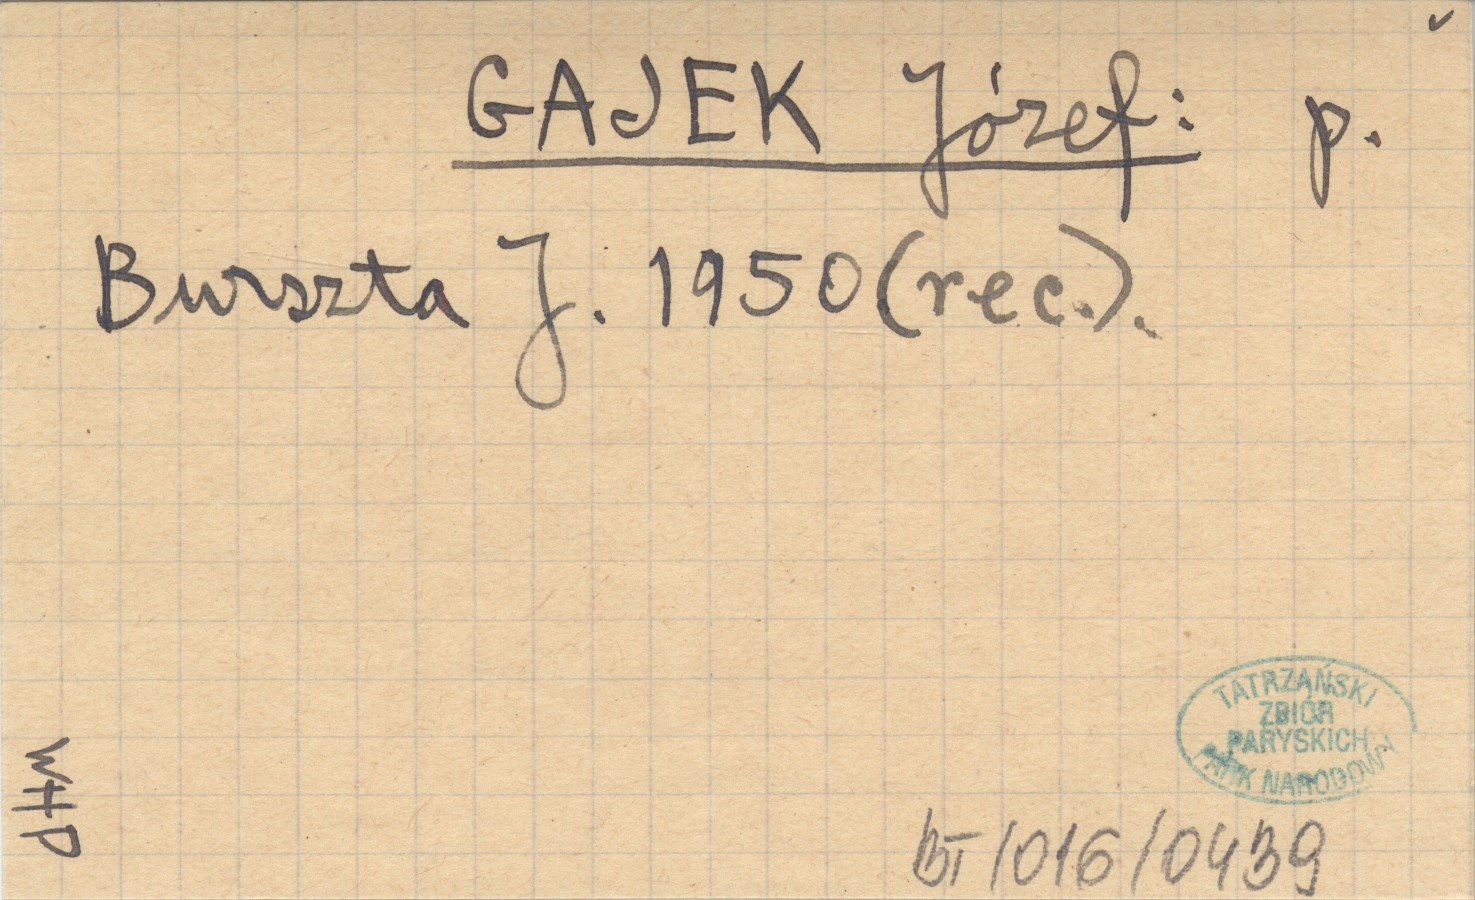 GAJEK Józef: p.
Burszta J. 1950 (rec.).
WHP
TATRZAŃSKI
ZBIÓR
PARYSKICH
PARK NARODOWY
BT/016/0439